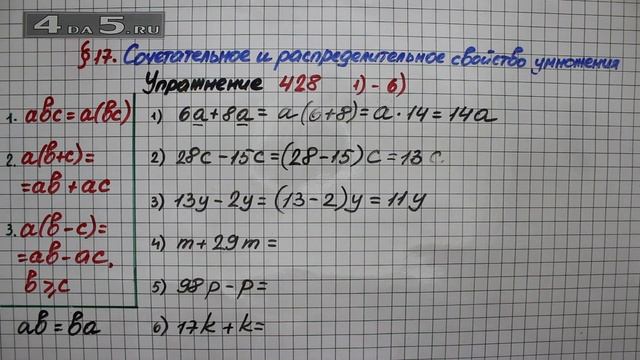 4DA5.RU
§17. Сочетательное и распределительное свойство умножения
Упражнение 428 1)-6)
1. abc=a(bc)
2. a(b+c)=
=ab+ac
3. a(b-c)=
=ab-ac,
b⩾c
ab=ba
1) 6a+8a=a(6+8)=a·14=14a
2) 28c-15c=(28-15)c=13c
3) 13y-2y=(13-2)y=11y
4) m+29m=
5) 98p-p=
6) 17k+k=